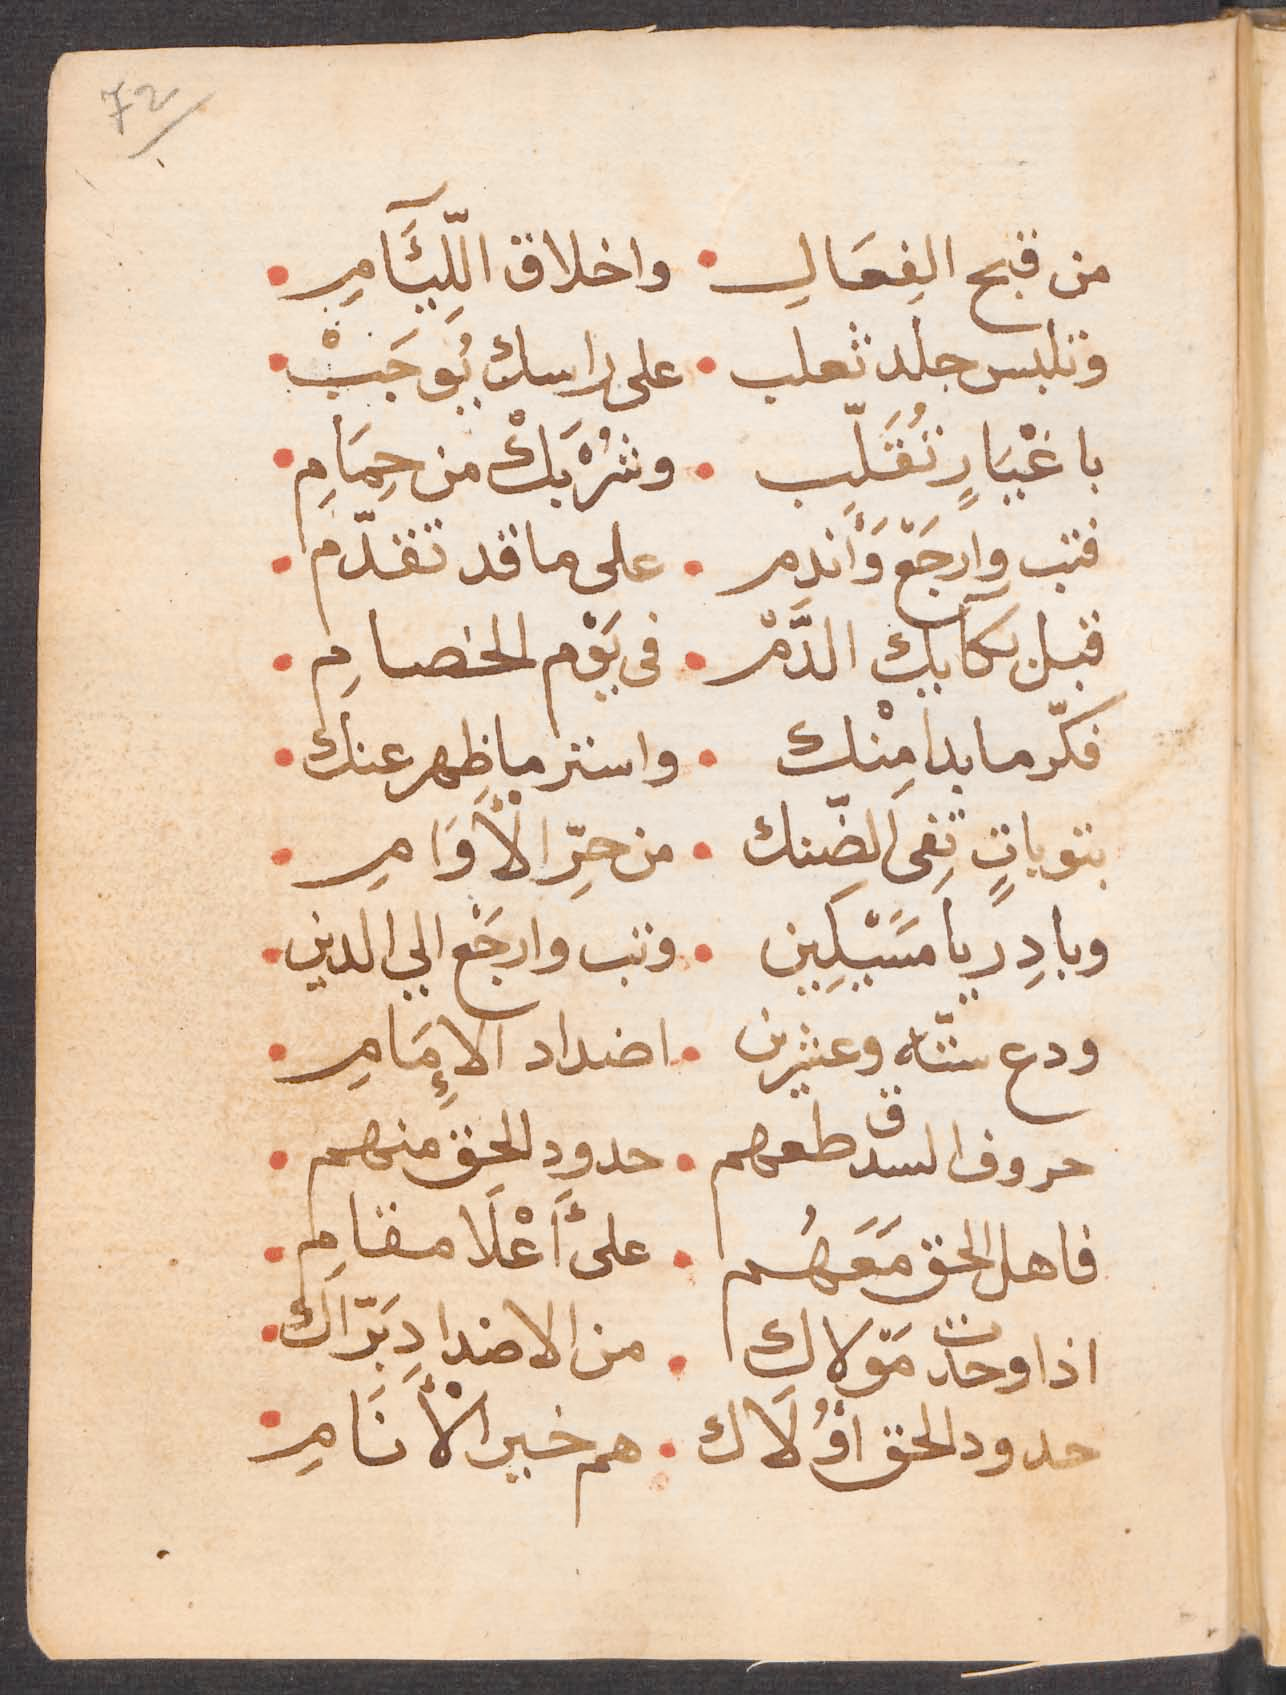 72
من قبح الفِعَالِ • واخلاق اللِّيَآمِ •
وتلبس جلد ثعلب • على راسك يُوجَبْ •
باغْيَارٍ تُقَلَّب • وشُرْبَكْ من حِمَامِ •
فتب وارجَعْ وَأندم • على ما قد تقدّم •
قبل بكآيك الدَّمْ • فى يَوْم الخصامِ •
فكّر ما بدا مِنْك • واستر ما ظهر عنك •
بتوباتٍ تِفِى الضّنك • من حرِّ الأوَامِ •
وبادِر يا مسَيْكِين • وتب وارجَعْ الي الدين •
ودع ستّه وعشرين • اضداد الإمَامِ •
حروف السدق طعهم • حدود الحق منهم •
فاهل الحق مَعَهُم • علىَّ أعْلَا مقامِ •
اذا وحدت مَوْلاك • من الاضدادِ بَرّاك •
حدود الحق اوْلَاك • هم خير الأنَامِ •